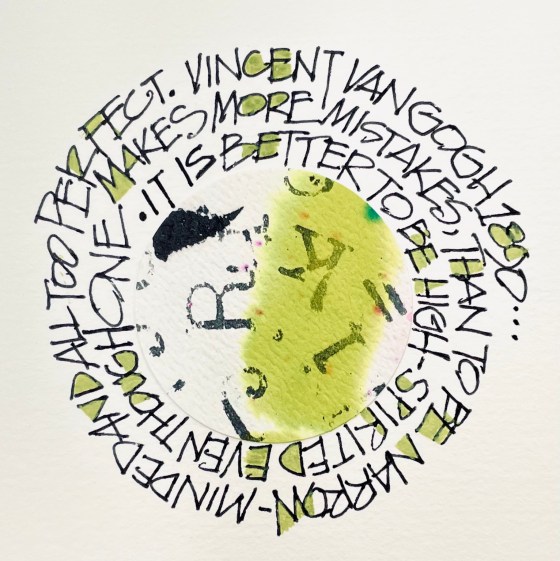 .IT IS BETTER TO BE HIGH-SPIRITED EVEN THOUGH ONE
MAKES MORE MISTAKES, THAN TO BE NARROW-MINDED AND ALL TOO PERFECT. VINCENT VAN GOGH 1890...
R
A
L